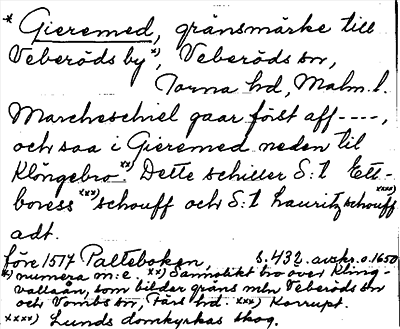 * Gieremed, gränsmärke till
Veberöds by *), Veberöds sn,
Torna hd, Malm. l.
Marcheschiel gaar först aff ----,
och saa i Gieremed neden til
Klöngebro. **) Dette schiller S:t Ett-
boress ***) schouff och S:t Lauritz schouff ****)
adt.
före 1517 Palteboken, s. 432. avskr. o. 1650
*) numera m:e. **) Sannolikt bro över Kling-
vallaån, som bildar gräns mln Veberöds sn
och Vombs sn, Färs hd. ***) Korrupt.
****) Lunds domkyrkas skog.